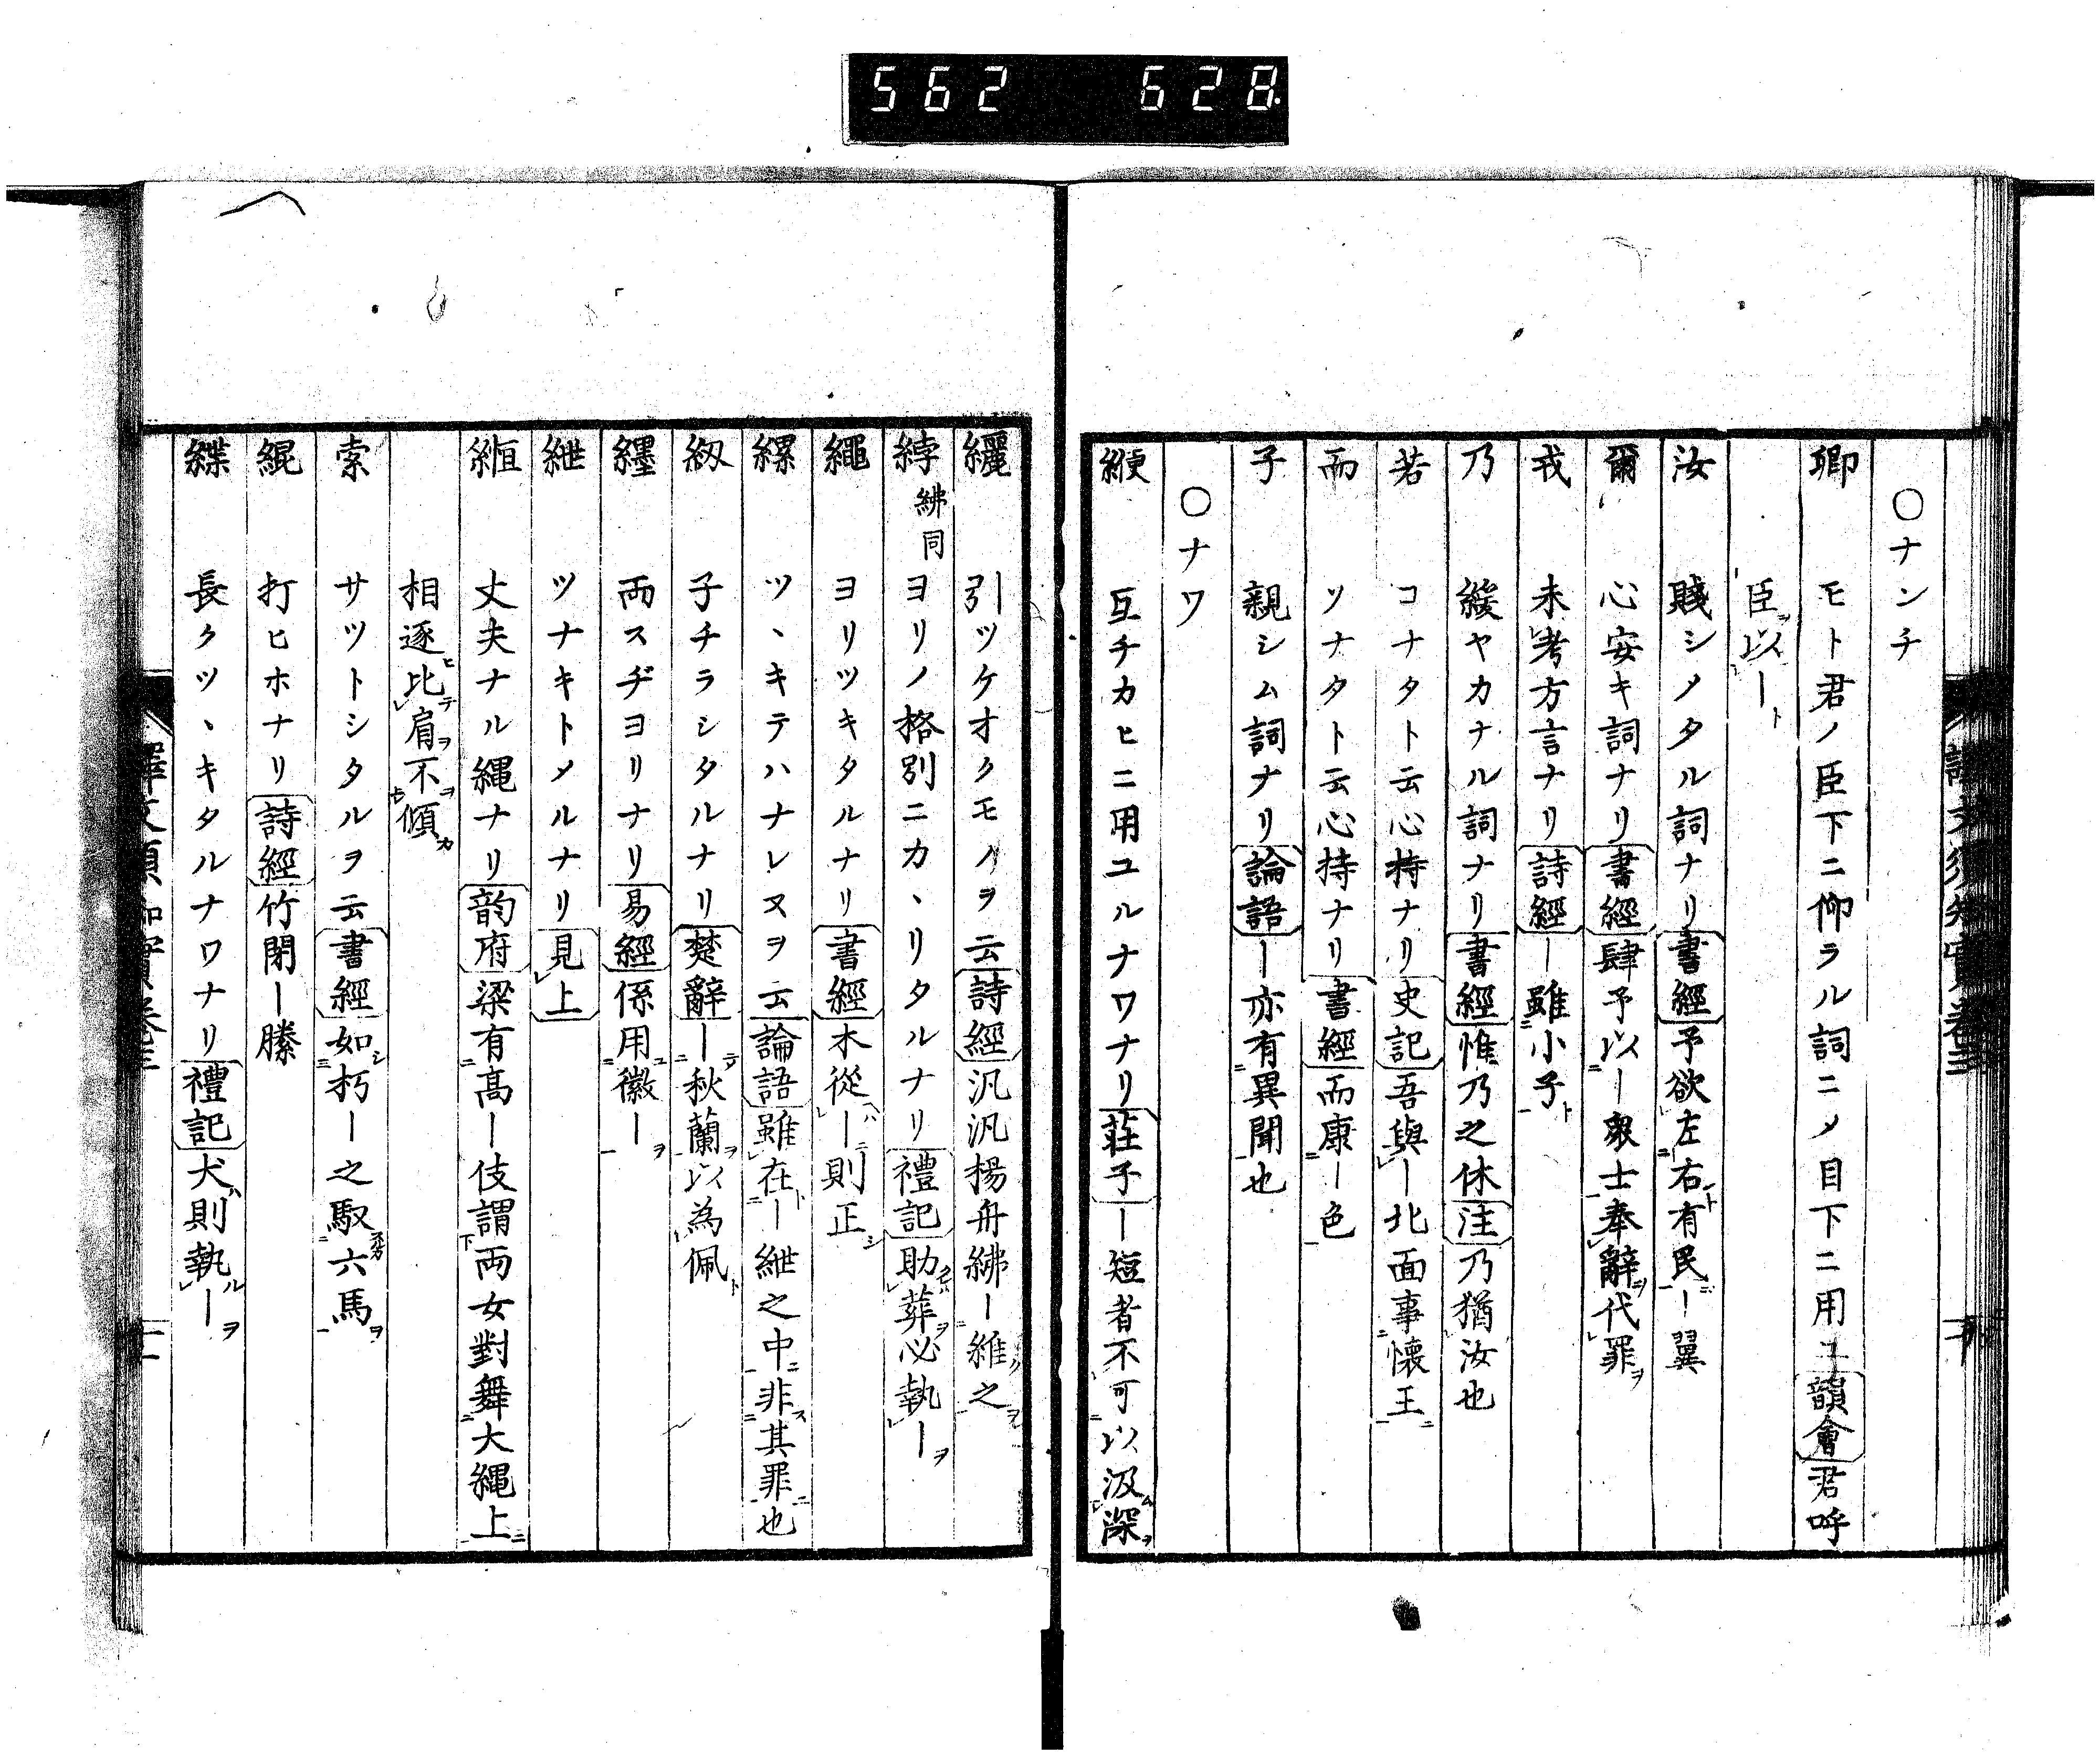 562 628
○ナンチ
卿 モト君ノ臣下ニ仰ラル詞ニメ目下ニ用ユ韻會君呼
臣以ー
汝 賤シメタル詞ナリ書經予欲左右有民ー翼
爾 心安キ詞ナリ書經肆予以ー衆士奉辭代罪
戎 未考方言ナリ詩經ー雖小子
乃 緩ヤカナル詞ナリ書經惟乃之休注乃猶汝也
若 コナタト云心持ナリ史記吾與ー北面事懷王
而 ソナタト云心持ナリ書經而康ー色
子 親シム詞ナリ論語ー亦有異聞也
○ナワ
綆 互チカヒニ用ユルナワナリ莊子ー短者不可以汲深
纚 引ツケオクモノヲ云詩經汎汎揚舟紼ー維之
綍 紼同 ヨリノ格別ニカヽリタルナリ禮記助葬必執ー
繩 ヨリツキタルナリ書經木從ー則正
縲 ツヽキテハナレヌヲ云論語雖在ー紲之中非其罪也
紉 子チラシタルナリ楚辭ー秋蘭以為佩
纆 両スヂヨリナリ易經係用徽ー
紲 ツナキトメルナリ見上
縆 丈夫ナル縄ナリ韵府梁有高ー伎謂両女對舞大縄上
相逐比肩不傾
索 サツトシタルヲ云書經如朽ー之馭六馬
緄 打ヒホナリ詩經竹閉ー縢
緤 長クツヽキタルナワナリ禮記犬則執ー